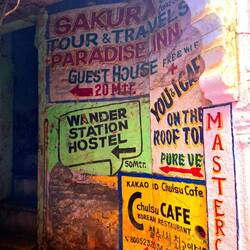 SAKURA
TOUR & TRAVELS
PARADISE INN
GUEST HOUSE
FREE WiF
20 Mtr.
YOU & I CAF
ON THE
ROOF TO
PURE VE
WANDER
STATION
HOSTEL
50Mtr.
MASTER
KAKAO ID Chulsu Cafe
Chulsu CAFE
KOREAN RESTAURANT